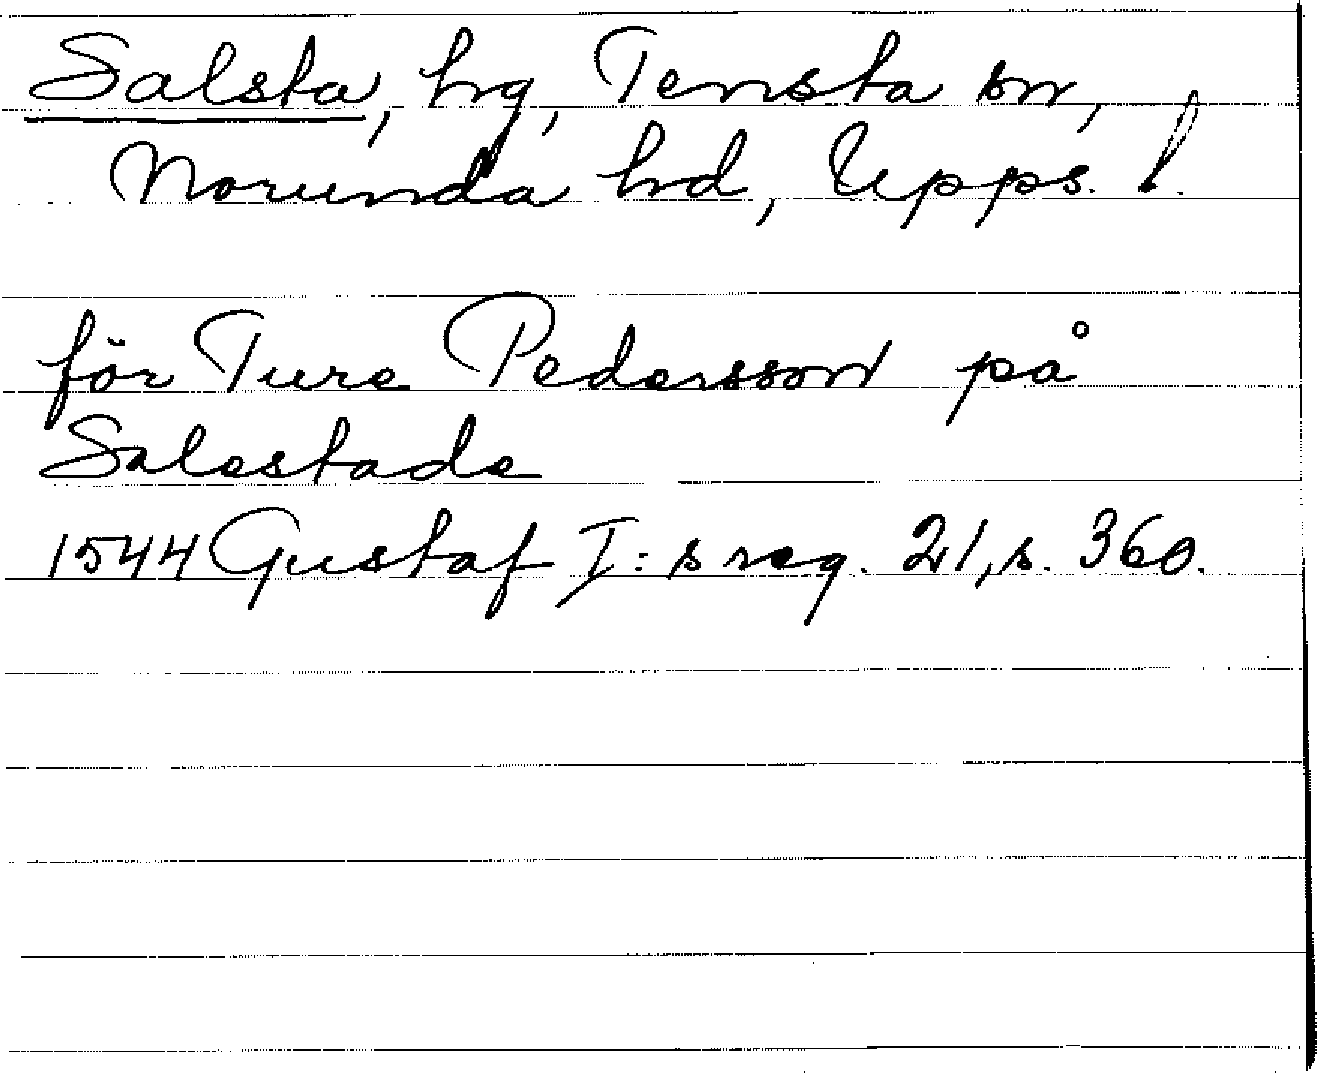 Salsta, hg, Tensta sn,
Norunda hd, Upps. l.
för Ture Pedersson på
Salestade
1544 Gustaf I:s reg. 21, s. 360.